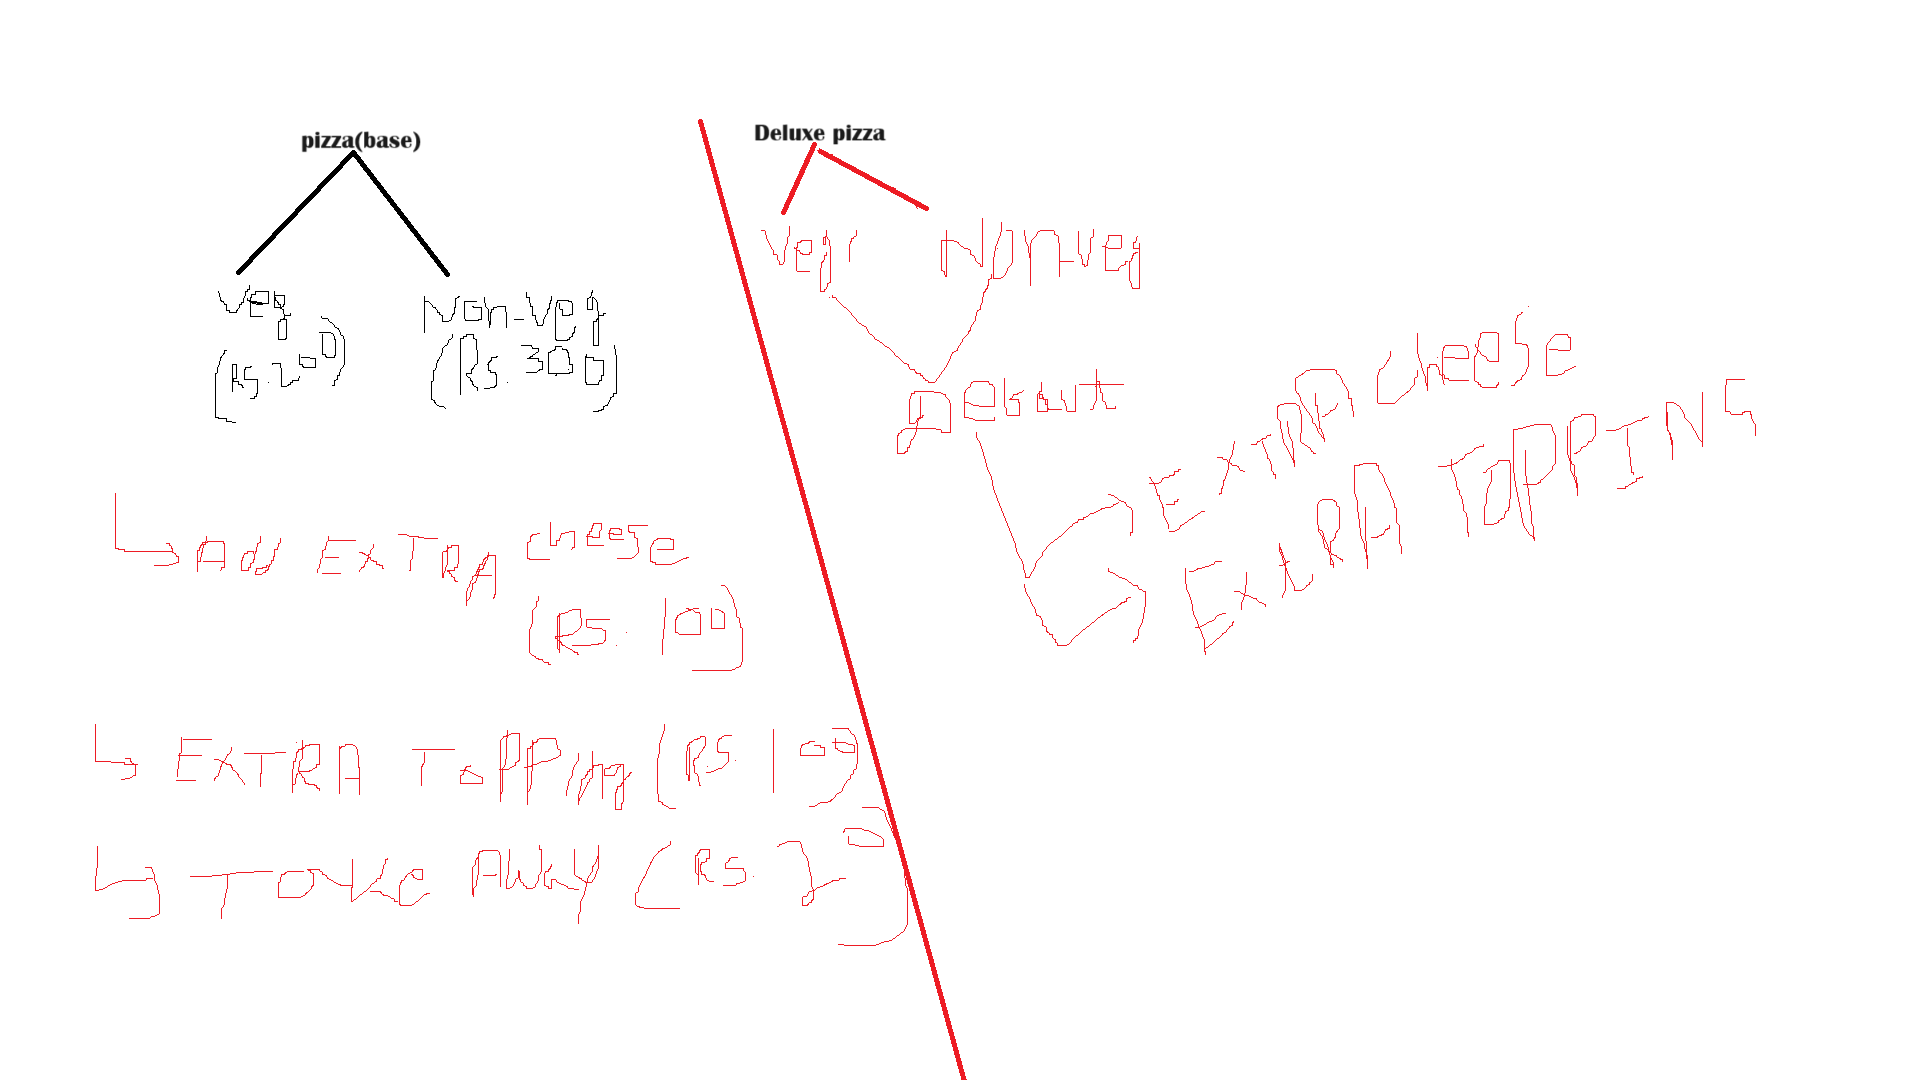 pizza(base)
Veg
(Rs.200)
Non-Veg
(Rs.300)
Add EXTRA cheese
(RS. 100)
EXTRA Topping (RS. 100)
TAKE AWAY (RS. 20)
Deluxe pizza
Veg
Non-veg
EXTRA cheese
EXtRA ToPPING